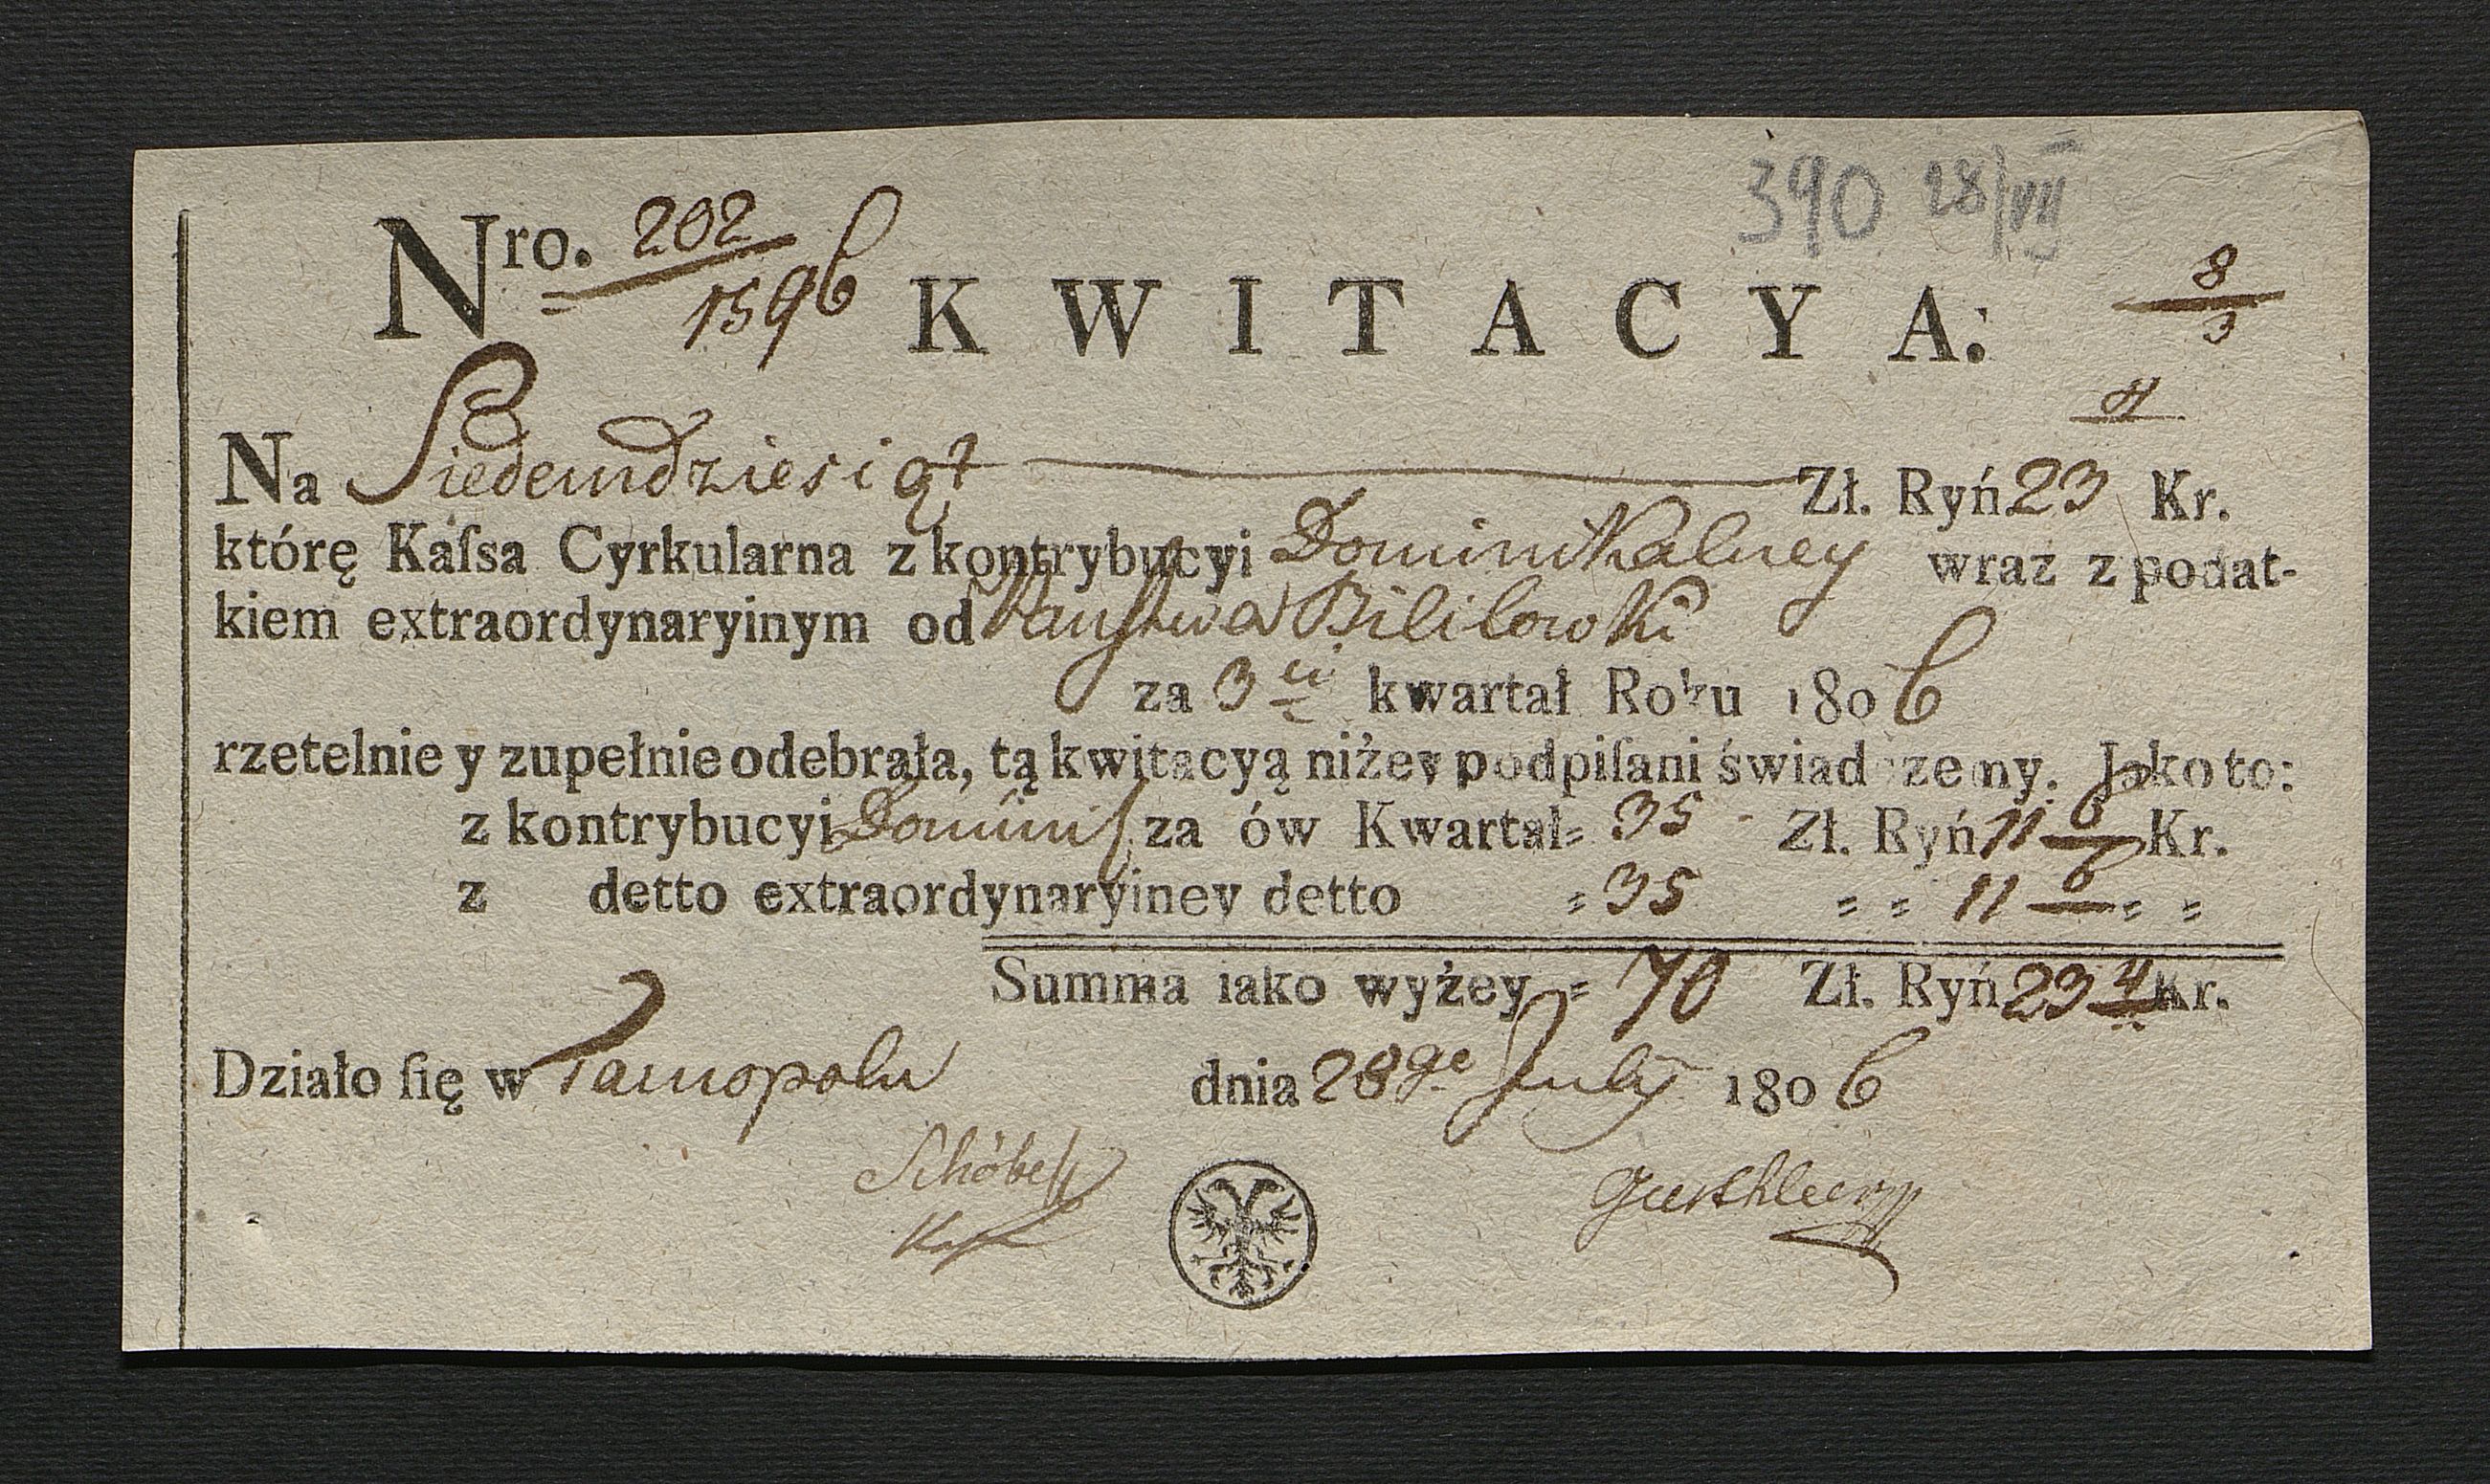 390 28/VII
Nro. 202/1596 KWITACYA: 8/3
4
Na Siedemdziesiąt Zł. Ryń. 23 Kr.
którę Kaſsa Cyrkularna z kontrybucyi Dominikalney wraz z podat-
kiem extraordynaryinym od Państwa Bililowki
za 3ci kwartał Roku 1806
rzetelnie y zupełnie odebrała, tą kwitacyą niżey podpiſani świadczemy. Jako to:
z kontrybucyi Dominik za ów Kwartal = 35 - Zł. Ryń 11 6 Kr.
z detto extraordynaryiney detto = 35 = = 11 6 = =
Summa iako wyżey = 70 Zł. Ryń. 23 4 Kr.
Działo ſię w Tarnopolu dnia 28go July 1806
Schöbel